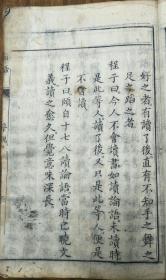 好之者有讀了後直有不知手之舞之
足之蹈之者
程子曰今人不會讀書如讀論語未讀時
是此等人讀了後又只是此等人便是
不會讀
程子曰頤自十七八讀論語當時已曉文
義讀之愈久但覺意味深長